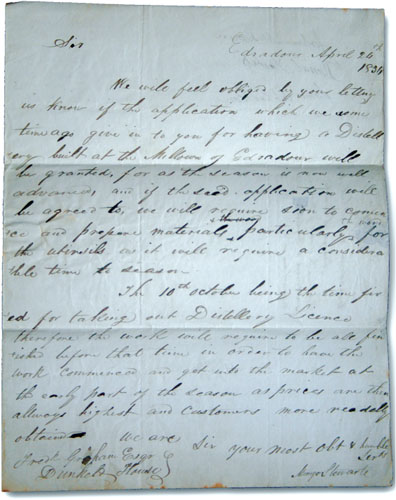 Edradour April 24th
Sir 1834
We will feel obliged by your letting
us know if the application which we some
time ago give in to you for having a Distill
ery built at the Milltown of Edradour will
be granted, for as the season is now well
advanced, and if the said application will
be agreed to, we will require soon to comen
ce and prepare materials, particularly for
the utensils as it will require a considera
ble time to season
The 10th october being the time fix
ed for taking out Distillery Licence
therefore the work will require to be all fin
ished before that time in order to have the
work commenced and get into the market at
the early part of the season as prices are then
allways highest and Customers more readily
obtained We are Sir your most Obt & humble
Servts
Fredr Graham Esqr
Dunkeld House
Stewart